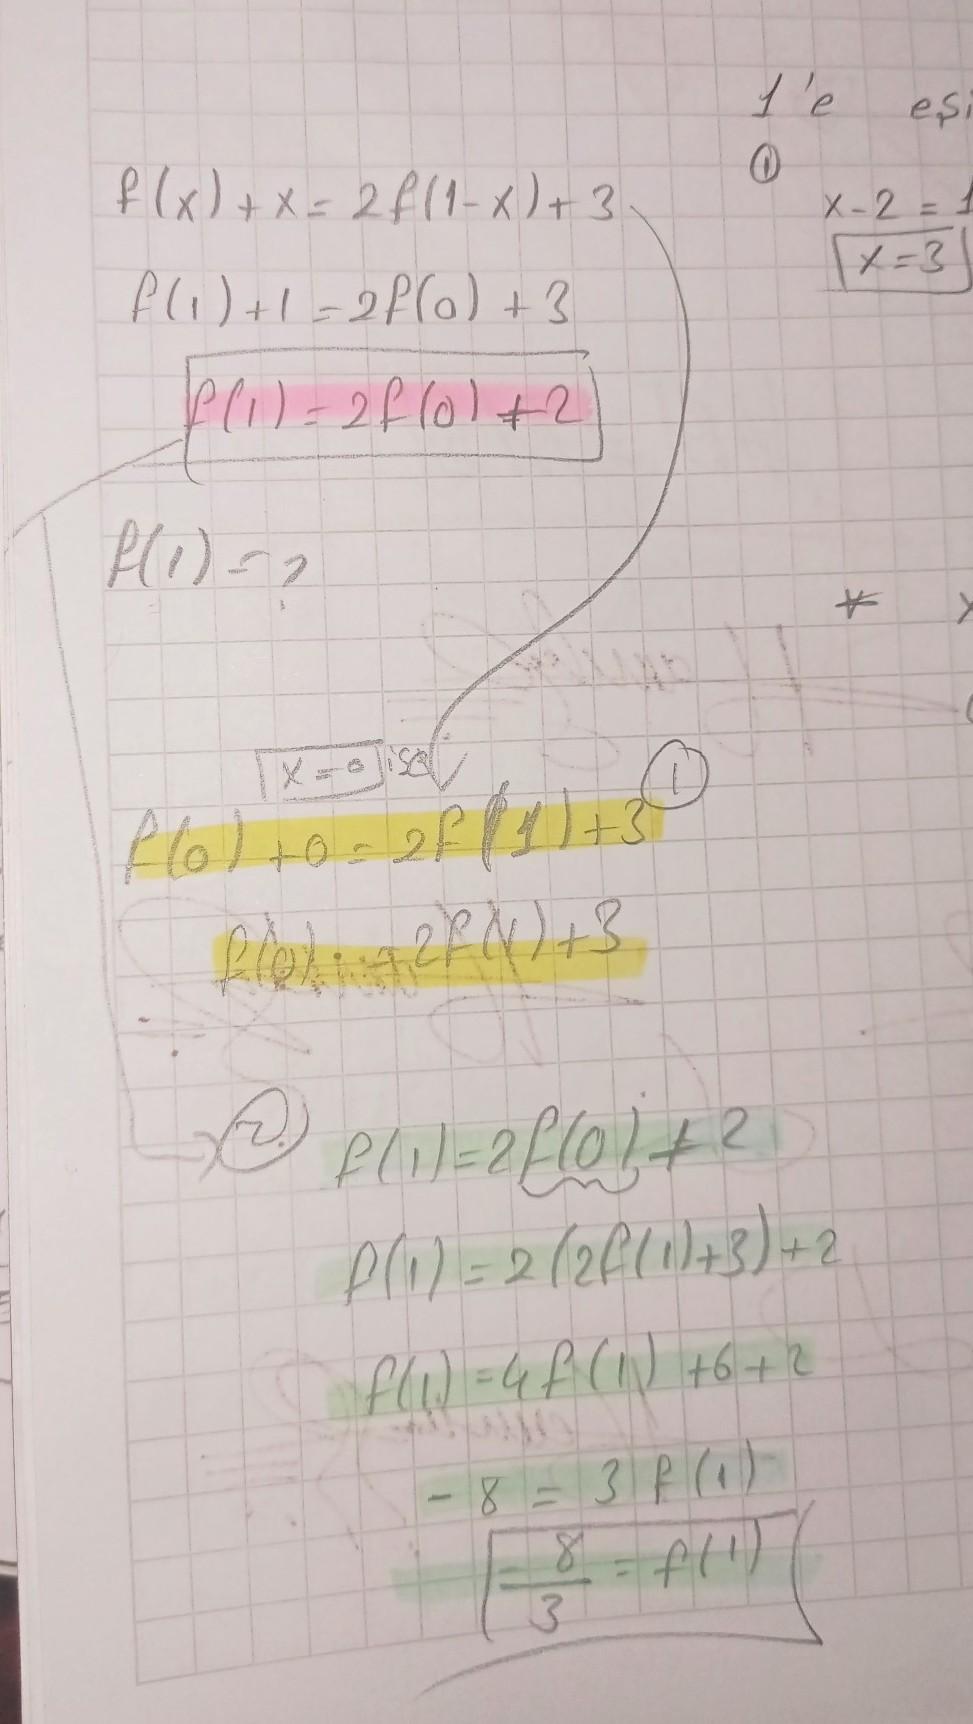 f(x) + x = 2f(1-x) + 3
f(1) + 1 = 2f(0) + 3
f(1) = 2f(0) + 2
f(1) = ?
x = 0 ise
f(0) + 0 = 2f(1) + 3 ①
f(0) = 2f(1) + 3
2.) f(1) = 2f(0) + 2
f(1) = 2(2f(1)+3) + 2
f(1) = 4f(1) + 6 + 2
-8 = 3f(1)
-8/3 = f(1)
1'e eşi
①
x - 2 = 1
x = 3
* x